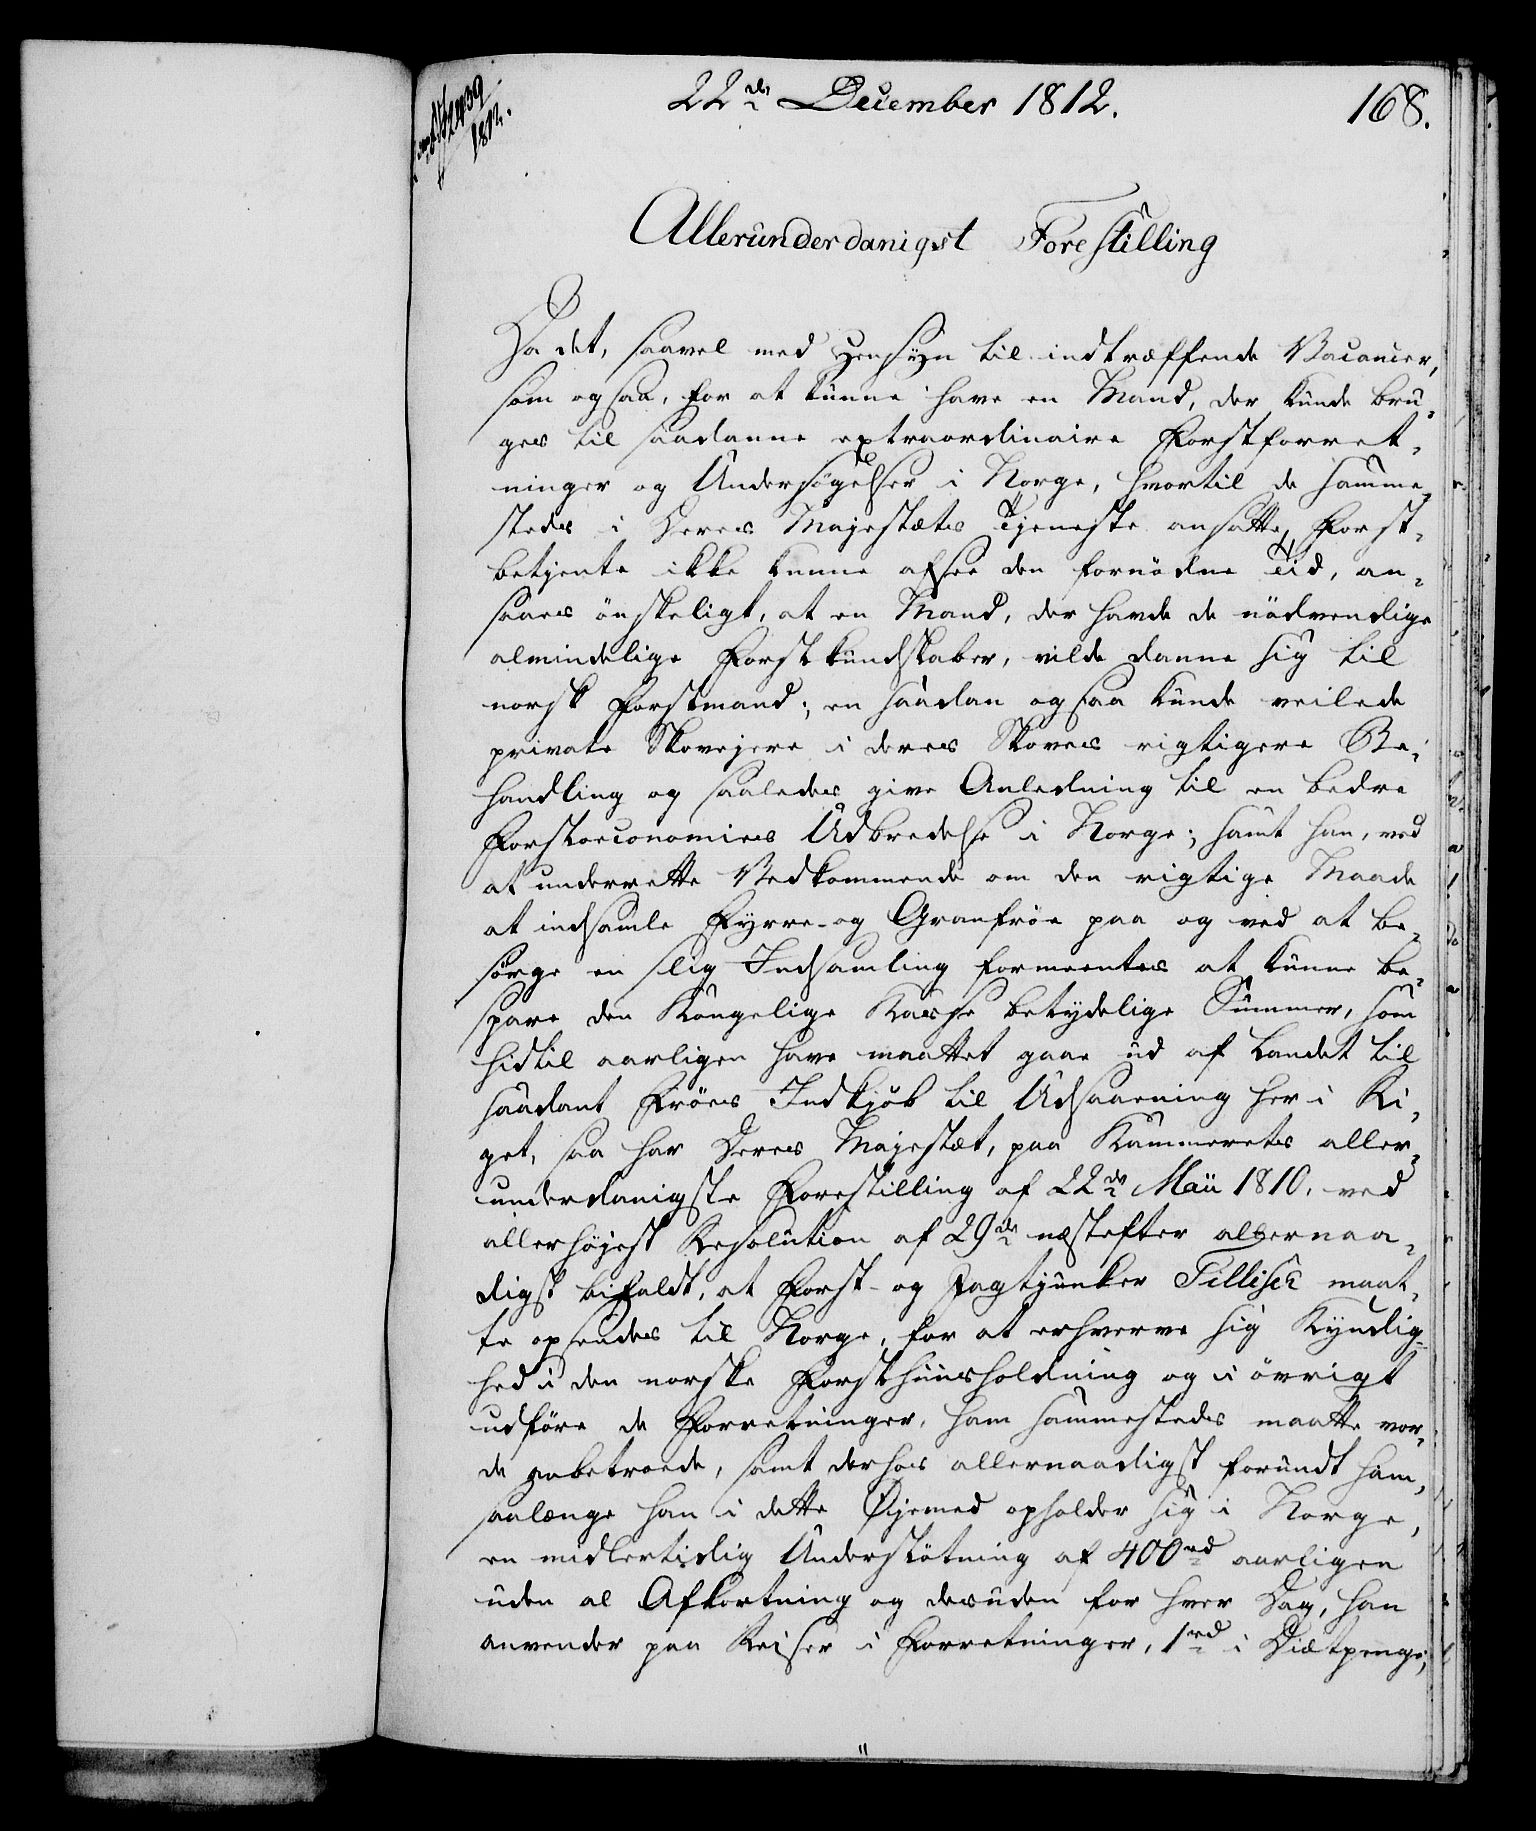 22de December 1812.
168.
2439
1812.
Allerunderdanigst Forestilling
Da det, saavel med Hensyn til indtræffende Vacancer,
som ogsaa, for at kunne have en Mand, der kunde bru-
ges til saadanne extraordinaire Forstforret-
ninger og Undersøgelser i Norge, hvortil de samme-
steds i Deres Majestæts Tjeneste ansatte Forst-
betjente ikke kunne afsee den fornödne Tid, an-
saaes önskeligt, at en Mand, der havde de nödvendige
almindelige Forstkundskaber, vilde danne sig til
norsk Forstmand; en saadan ogsaa kunde veilede
private Skovejere i deres Skoves rigtigere Be-
handling og saaledes give Anledning til en bedre
Forstoeconomies Udbredelse i Norge; samt han, ved
at underrette Vedkommende om den rigtige Maade
at indsamle Fyrre- og Granfröe paa og ved at be-
sörge en slig Indsamling formeentes at kunne be-
spare den Kongelige Kasse betydelige Summer, som
hidtil aarligen have maattet gaae ud af Landet til
saadant Fröes Indkjöb til Udsaaening her i Ri-
get, saa har Deres Majestæt, paa Kammerets aller-
underdanigste Forestilling af 22de Maii 1810, ved
allerhöjest Resolution af 29de næstefter allernaa-
digst bifaldt, at Forst- og Jagtjunker Tillisch maat-
te opsendes til Norge, for at erhverve sig Kyndig-
hed i den norske Forsthuusholdning og i övrigt
udföre de Forretninger, ham sammesteds maatte vor-
de anbetroede, samt derhos allernaadigst forundt ham,
saalænge han i dette Øjemed opholder sig i Norge,
en midlertidig Understötning af 400 rd aarligen
uden al Afkortning og desuden for hver Dag, han
anvender paa Reiser i Forretninger, 1 rd i Diætpenge;